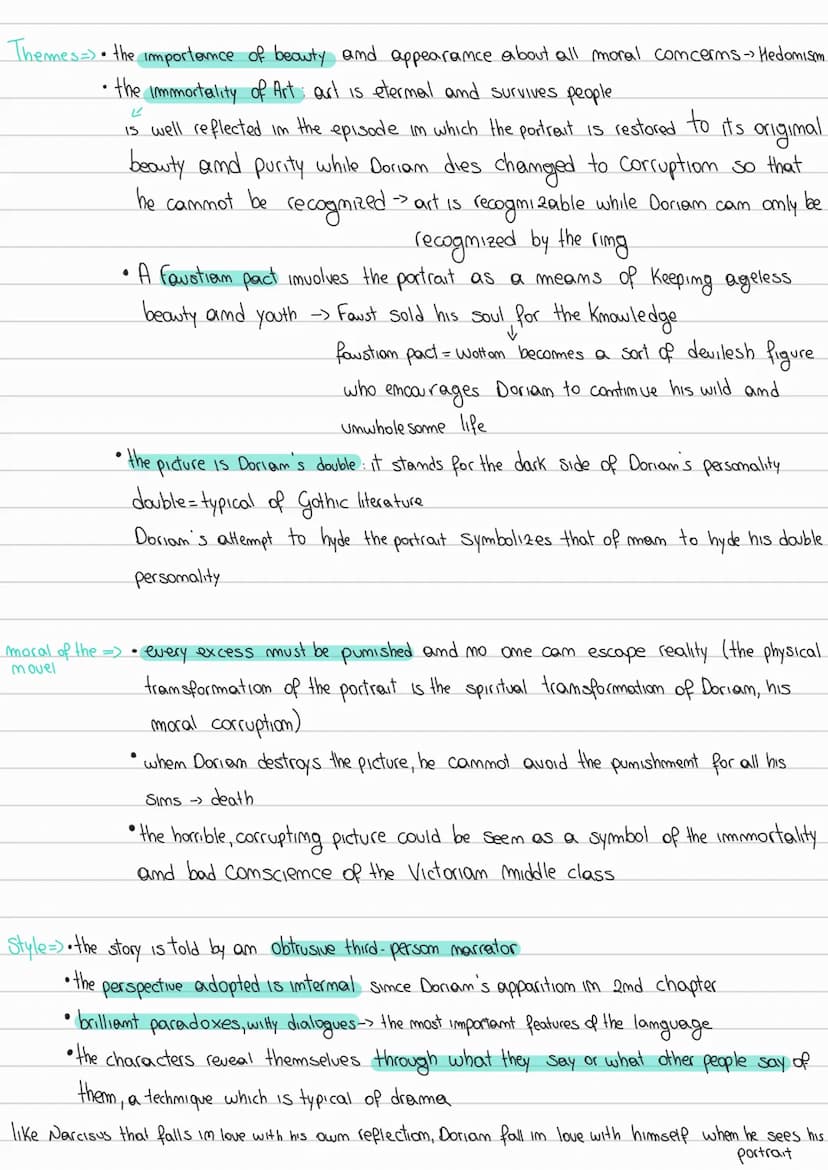 Themes=> • the importance of beauty and appearance about all moral concerns -> Hedonism
• the immortality of Art: art is eternal and survives people
is well reflected in the episode in which the portrait is restored to its original
beauty and purity while Dorian dies changed to corruption so that
he cannot be recognized -> art is recognizable while Dorian can only be
recognized by the ring
• A faustian pact involves the portrait as a means of keeping ageless
beauty and youth -> Faust sold his soul for the Knowledge
faustian pact = Wotton becomes a sort of devilesh figure
who encourages Dorian to continue his wild and
unwholesome life
• the picture is Dorian's double: it stands for the dark side of Dorian's personality
double = typical of Gothic literature
Dorian's attempt to hyde the portrait symbolizes that of man to hyde his double
personality
moral of the => • every excess must be punished and no one can escape reality (the physical
novel
transformation of the portrait is the spiritual transformation of Dorian, his
moral corruption)
• when Dorian destroys the picture, he cannot avoid the punishment for all his
sins -> death
• the horrible, corrupting picture could be seen as a symbol of the immortality
and bad conscience of the Victorian middle class
Style=> • the story is told by an obtrusive third-person narrator
• the perspective adopted is internal since Dorian's apparition in 2nd chapter
• brilliant paradoxes, witty dialogues -> the most important features of the language
• the characters reveal themselves through what they say or what other people say of
them, a technique which is typical of drama
like Narcisus that falls in love with his own reflection, Dorian fall in love with himself when he sees his
portrait